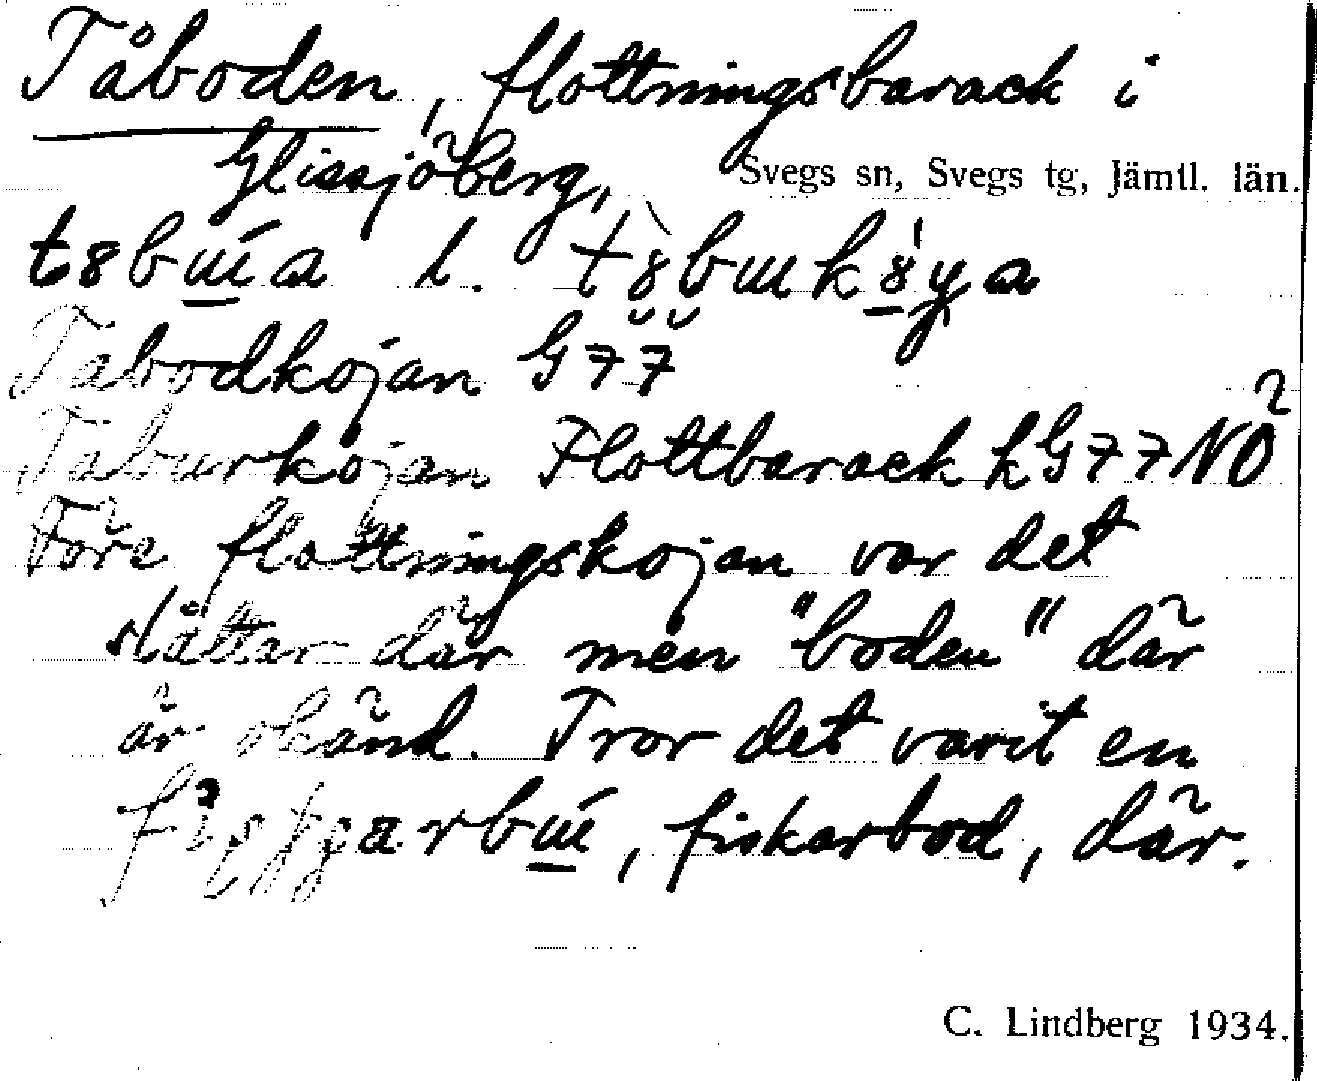 Tåboden, flottningsbarack i
Glissjöberg,
Svegs sn, Svegs tg, Jämtl. län.
l.
Tåbodkojan G77
Taburkojan Flottbarack h G77NÖ
Före flottningskojan var det
slåttar där men "boden" där
är okänd. Tror det varit en
fiskarbod, där.
C. Lindberg 1934.